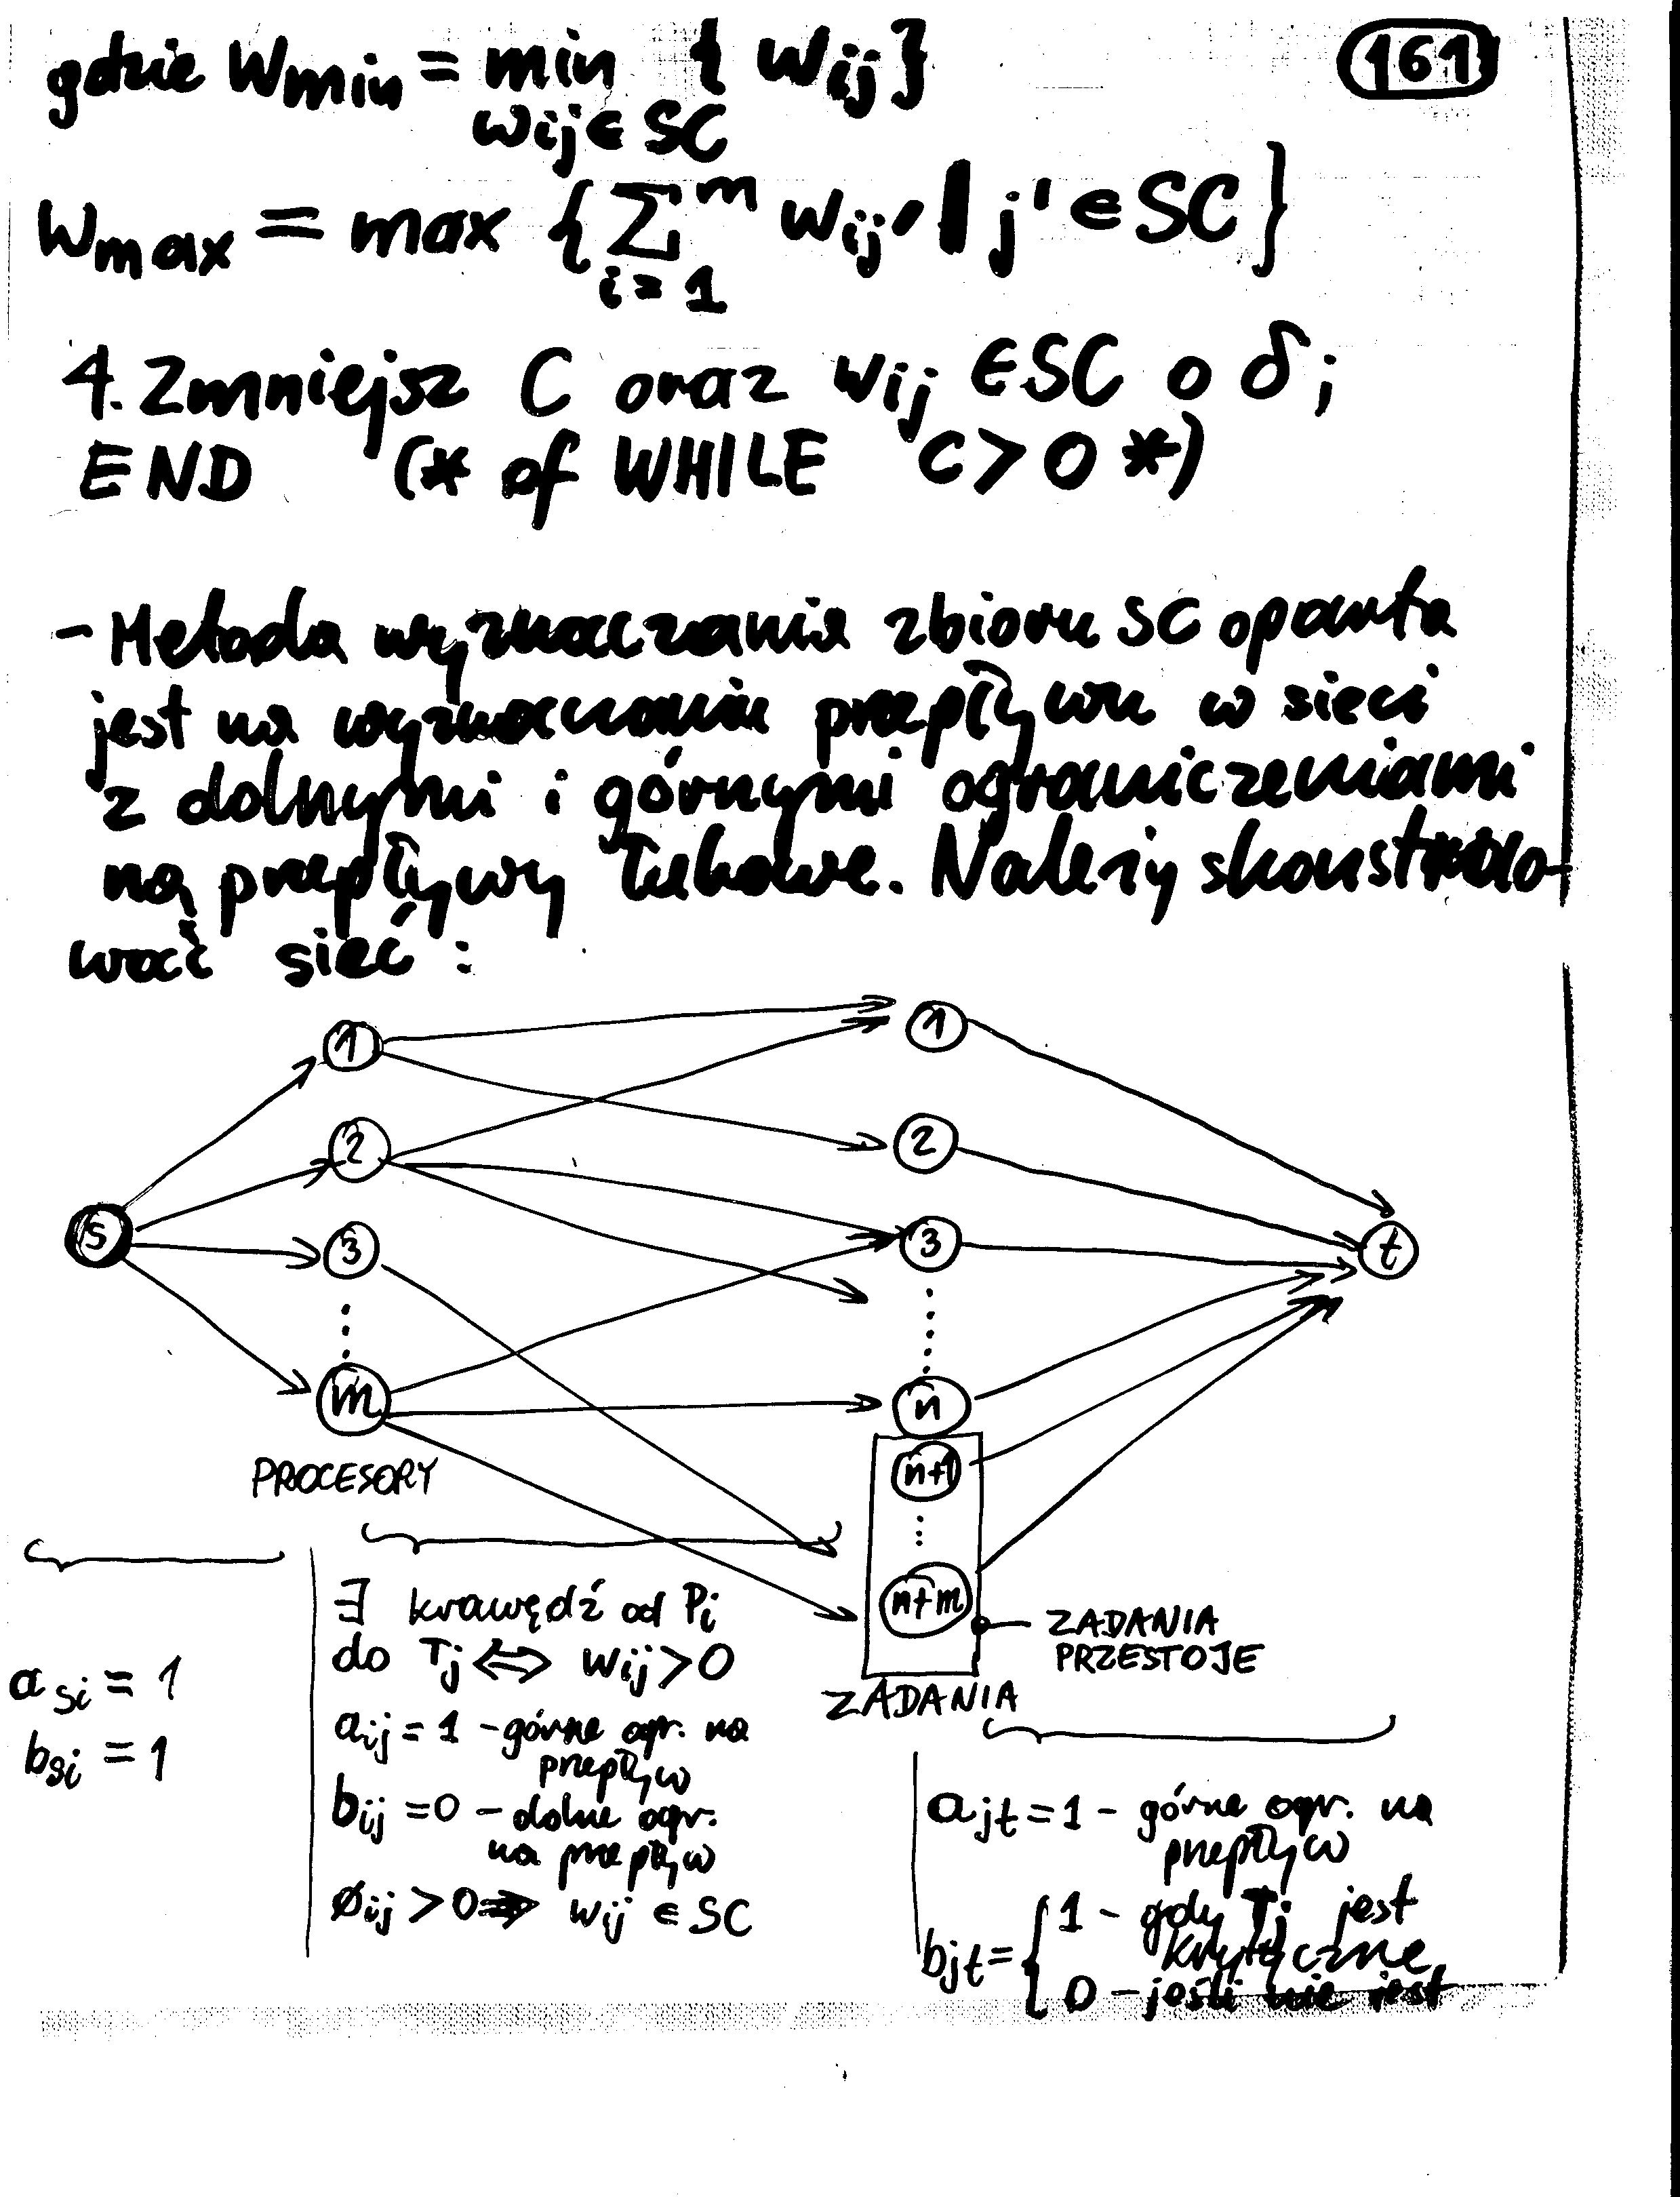 161
gdzie Wmin = min { wij }
wij ∈ SC
Wmax = max { Σ^m wij' | j' ∈ SC }
i=1
4. Zmniejsz C oraz wij ∈ SC o δ ;
END (* of WHILE C > 0 *)
- Metoda wyznaczania zbioru SC oparta
jest na wyznaczaniu przepływu w sieci
z dolnymi i górnymi ograniczeniami
na przepływy łukowe. Należy skonstruo-
wać sieć :
1 1
2 2
s 3 3 t
m n
n+1
n+m
PROCESORY
ZADANIA
PRZESTOJE
ZADANIA
a si = 1
b si = 1
∃ krawędź od Pi
do Tj ⇔ wij > 0
aij = 1 - górne ogr. na
przepływ
bij = 0 - dolne ogr.
na przepływ
øij > 0 ⇒ wij ∈ SC
ajt = 1 - górne ogr. na
przepływ
bjt = { 1 - gdy Tj jest
krytyczne
0 - jeśli nie jest